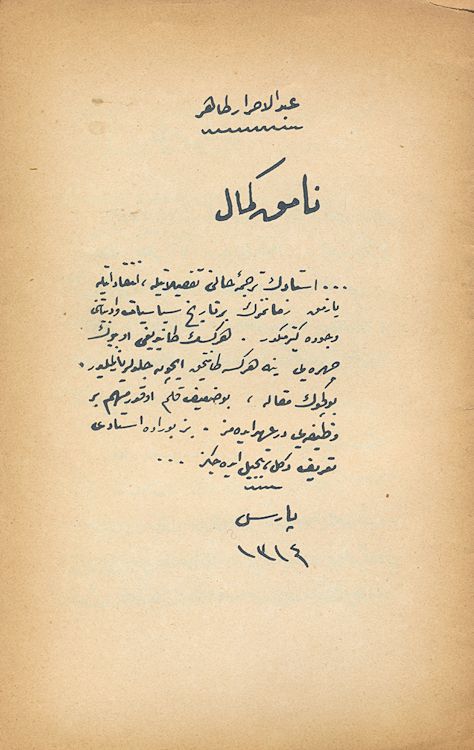 عبدالاحرار طاهر
نامق كمال
... استادك ترجمهٔ حالنى تفصيلاتيله ، انتقاداتيله
يازمق زمانمزك بر تاريخ سياسيات وادبياتنى
وجوده كتيرمكدر . هركسك طانيديغى او بيوك
چهره‌يى ينه هركسه طانيتمق ايچون جلدلر يازيلمليدر .
بو كوچك مقاله ، بو ضعيف قلم اوقدر مهم بر
وظيفه‌يى در عهد ايده‌مز . بز بوراده استادى
تعريف دكل ، تبجيل ايده‌جكز ...
پارس
١٣١٤